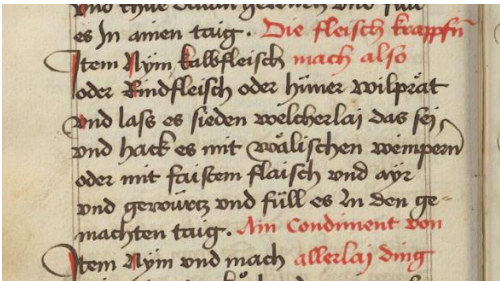 es Jn ainen taig. Die fleisch krapffn
Jtem Nym kalbfleisch mach also
oder Rindfleisch oder hüner wilprät
vnd lass es sieden welcherlaj das sej
vnd hack es mit wälischen weinpern
oder mit faistem flaisch vnd ayr
vnd gewürtz vnd füll es Jn den ge¬
machten taig. Ain Condiment von
Jtem Nym vnd mach allerlaj ding